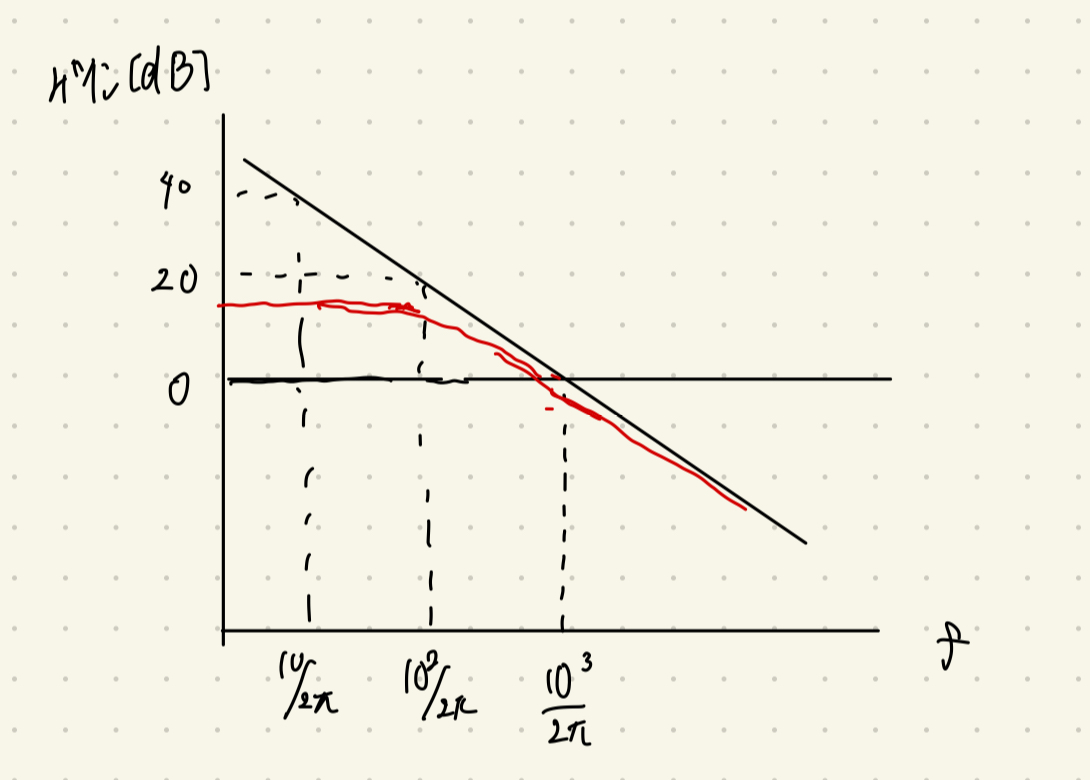 ゲイン[dB]
40
20
0
10/2π
10²/2π
10³/2π
f